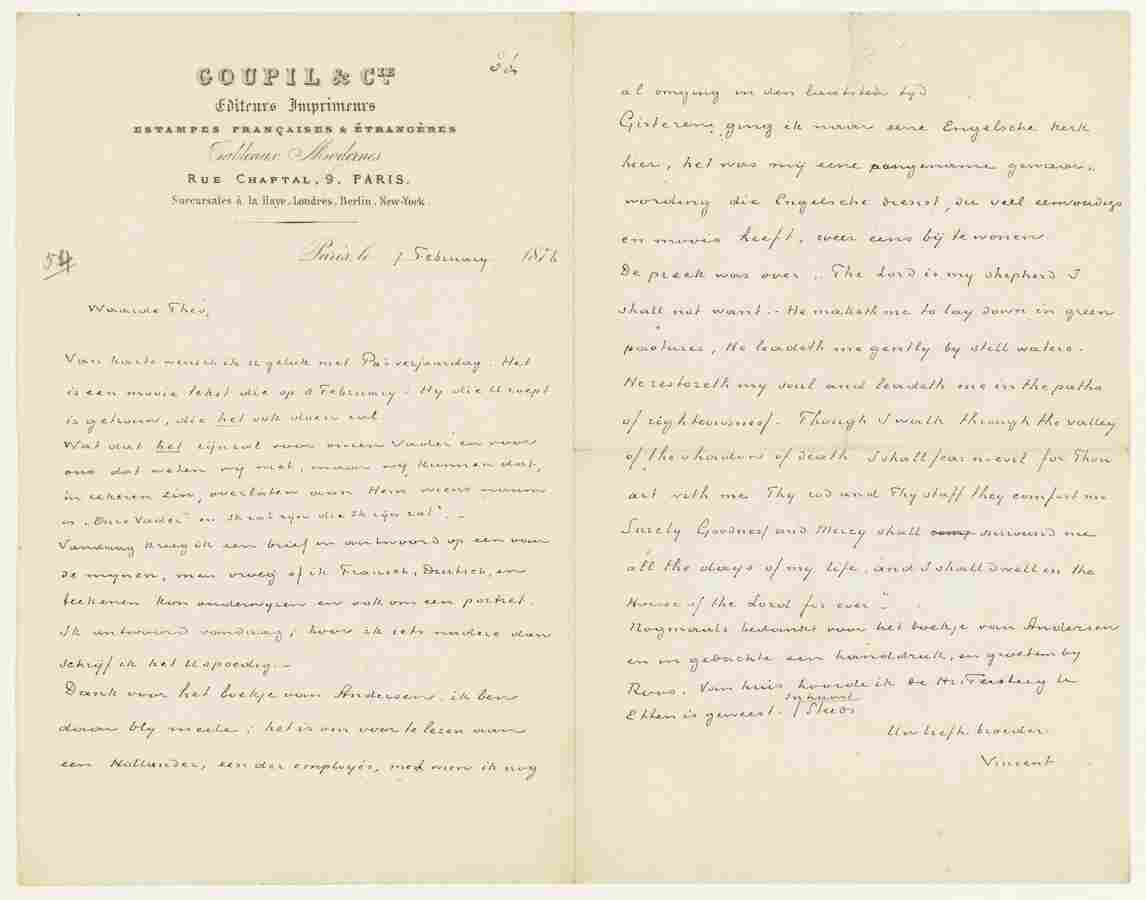 GOUPIL & CIE
Editeurs Imprimeurs
ESTAMPES FRANÇAISES & ÉTRANGÈRES
Tableaux Modernes
RUE CHAPTAL, 9, PARIS.
Succursales à la Haye, Londres, Berlin, New-York.
Paris, le 7 February 1876
Waarde Theo,
Van harte wensch ik U geluk met Pa's verjaardag. Het
is een mooie tekst die op 8 February. Hy die U roept
is getrouw, die het ook doen zal.
Wat dat het zijn zal voor onzen Vader en voor
ons dat weten wij niet, maar wij kunnen dat,
in zekeren zin, overlaten aan Hem wiens naam
is „Onze Vader" en „Ik zal zijn die Ik zijn zal". -
Vandaag kreeg ik een brief in antwoord op een van
de mynen, men vroeg of ik Fransch, Duitsch, en
teekenen kon onderwyzen en ook om een portret.
Ik antwoord vandaag; hoor ik iets nader dan
schrijf ik het U spoedig. -
Dank voor het boekje van Andersen, ik ben
daar bly mede; het is om voor te lezen aan
een Hollander, een der employés, met wien ik nog
al omging in den laatsten tyd
Gisteren ging ik naar eene Engelsche kerk
hier, het was my eene aangename gewaar-
wording die Engelsche dienst, die veel eenvoudigs
en moois heeft, weer eens bij te wonen
De preek was over „The Lord is my shepherd I
shall not want. - He maketh me to lay down in green
pastures, He leadeth me gently by still waters.
He restoreth my soul and leadeth me in the paths
of righteousness. Though I walk through the valley
of the shadow of death I shall fear no evil for Thou
art with me Thy rod and Thy staff they comfort me
Surely Goodness and Mercy shall surround me
all the days of my life, and I shall dwell in the
House of the Lord for ever".
Nogmaals bedankt voor het boekje van Andersen
en in gedachte een handdruk, en groeten by
Roos. Van huis hoorde ik de Hr Tersteeg te
Etten is geweest.
Uw liefh. broeder
Vincent